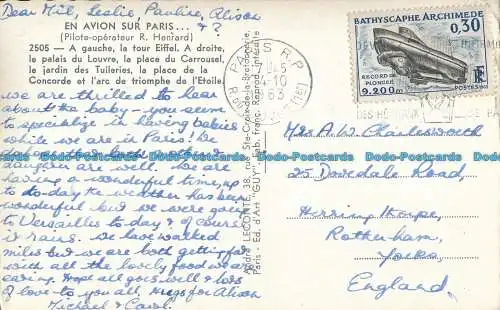 Dear Mick, Leslie, Pauline, Alison
& ?
EN AVION SUR PARIS...
(Pilote-opérateur R. Henrard)
2505 - A gauche, la tour Eiffel. A droite,
le palais du Louvre, la place du Carrousel,
le jardin des Tuileries, la place de la
Concorde et l'arc de triomphe de l'Etoile.
We are thrilled to hear
about the baby, you seem
to specialize in having babies
while we are in Paris! We
do hope
daughter are well. We are
having a wonderful time, up
to to-day the weather has been
wonderful but we were going
to Versailles to-day & of course
it rains. We have walked
miles but we are both getting fat
with all the lovely food we are
eating. Hope all goes well & lots
of love to you all. Hugs for Alison
Michael & Carol.
André LECONTE, 38, rue Ste-Croix-de-la-Bretonnerie,
Paris - Ed. d'Art "GUY" - Fab. franç. Reprod. interdite
PARIS R.P.
1963
BATHYSCAPHE ARCHIMEDE
0,30
RECORD DE
PLONGEE
9.200m
POSTES
Mrs A. W. Charlesworth
25 Dovedale Road,
Herringthorpe,
Rotherham,
Yorks
England.
Todo-Postcards Todo-Postcards Todo-Postcards Todo-Postcards